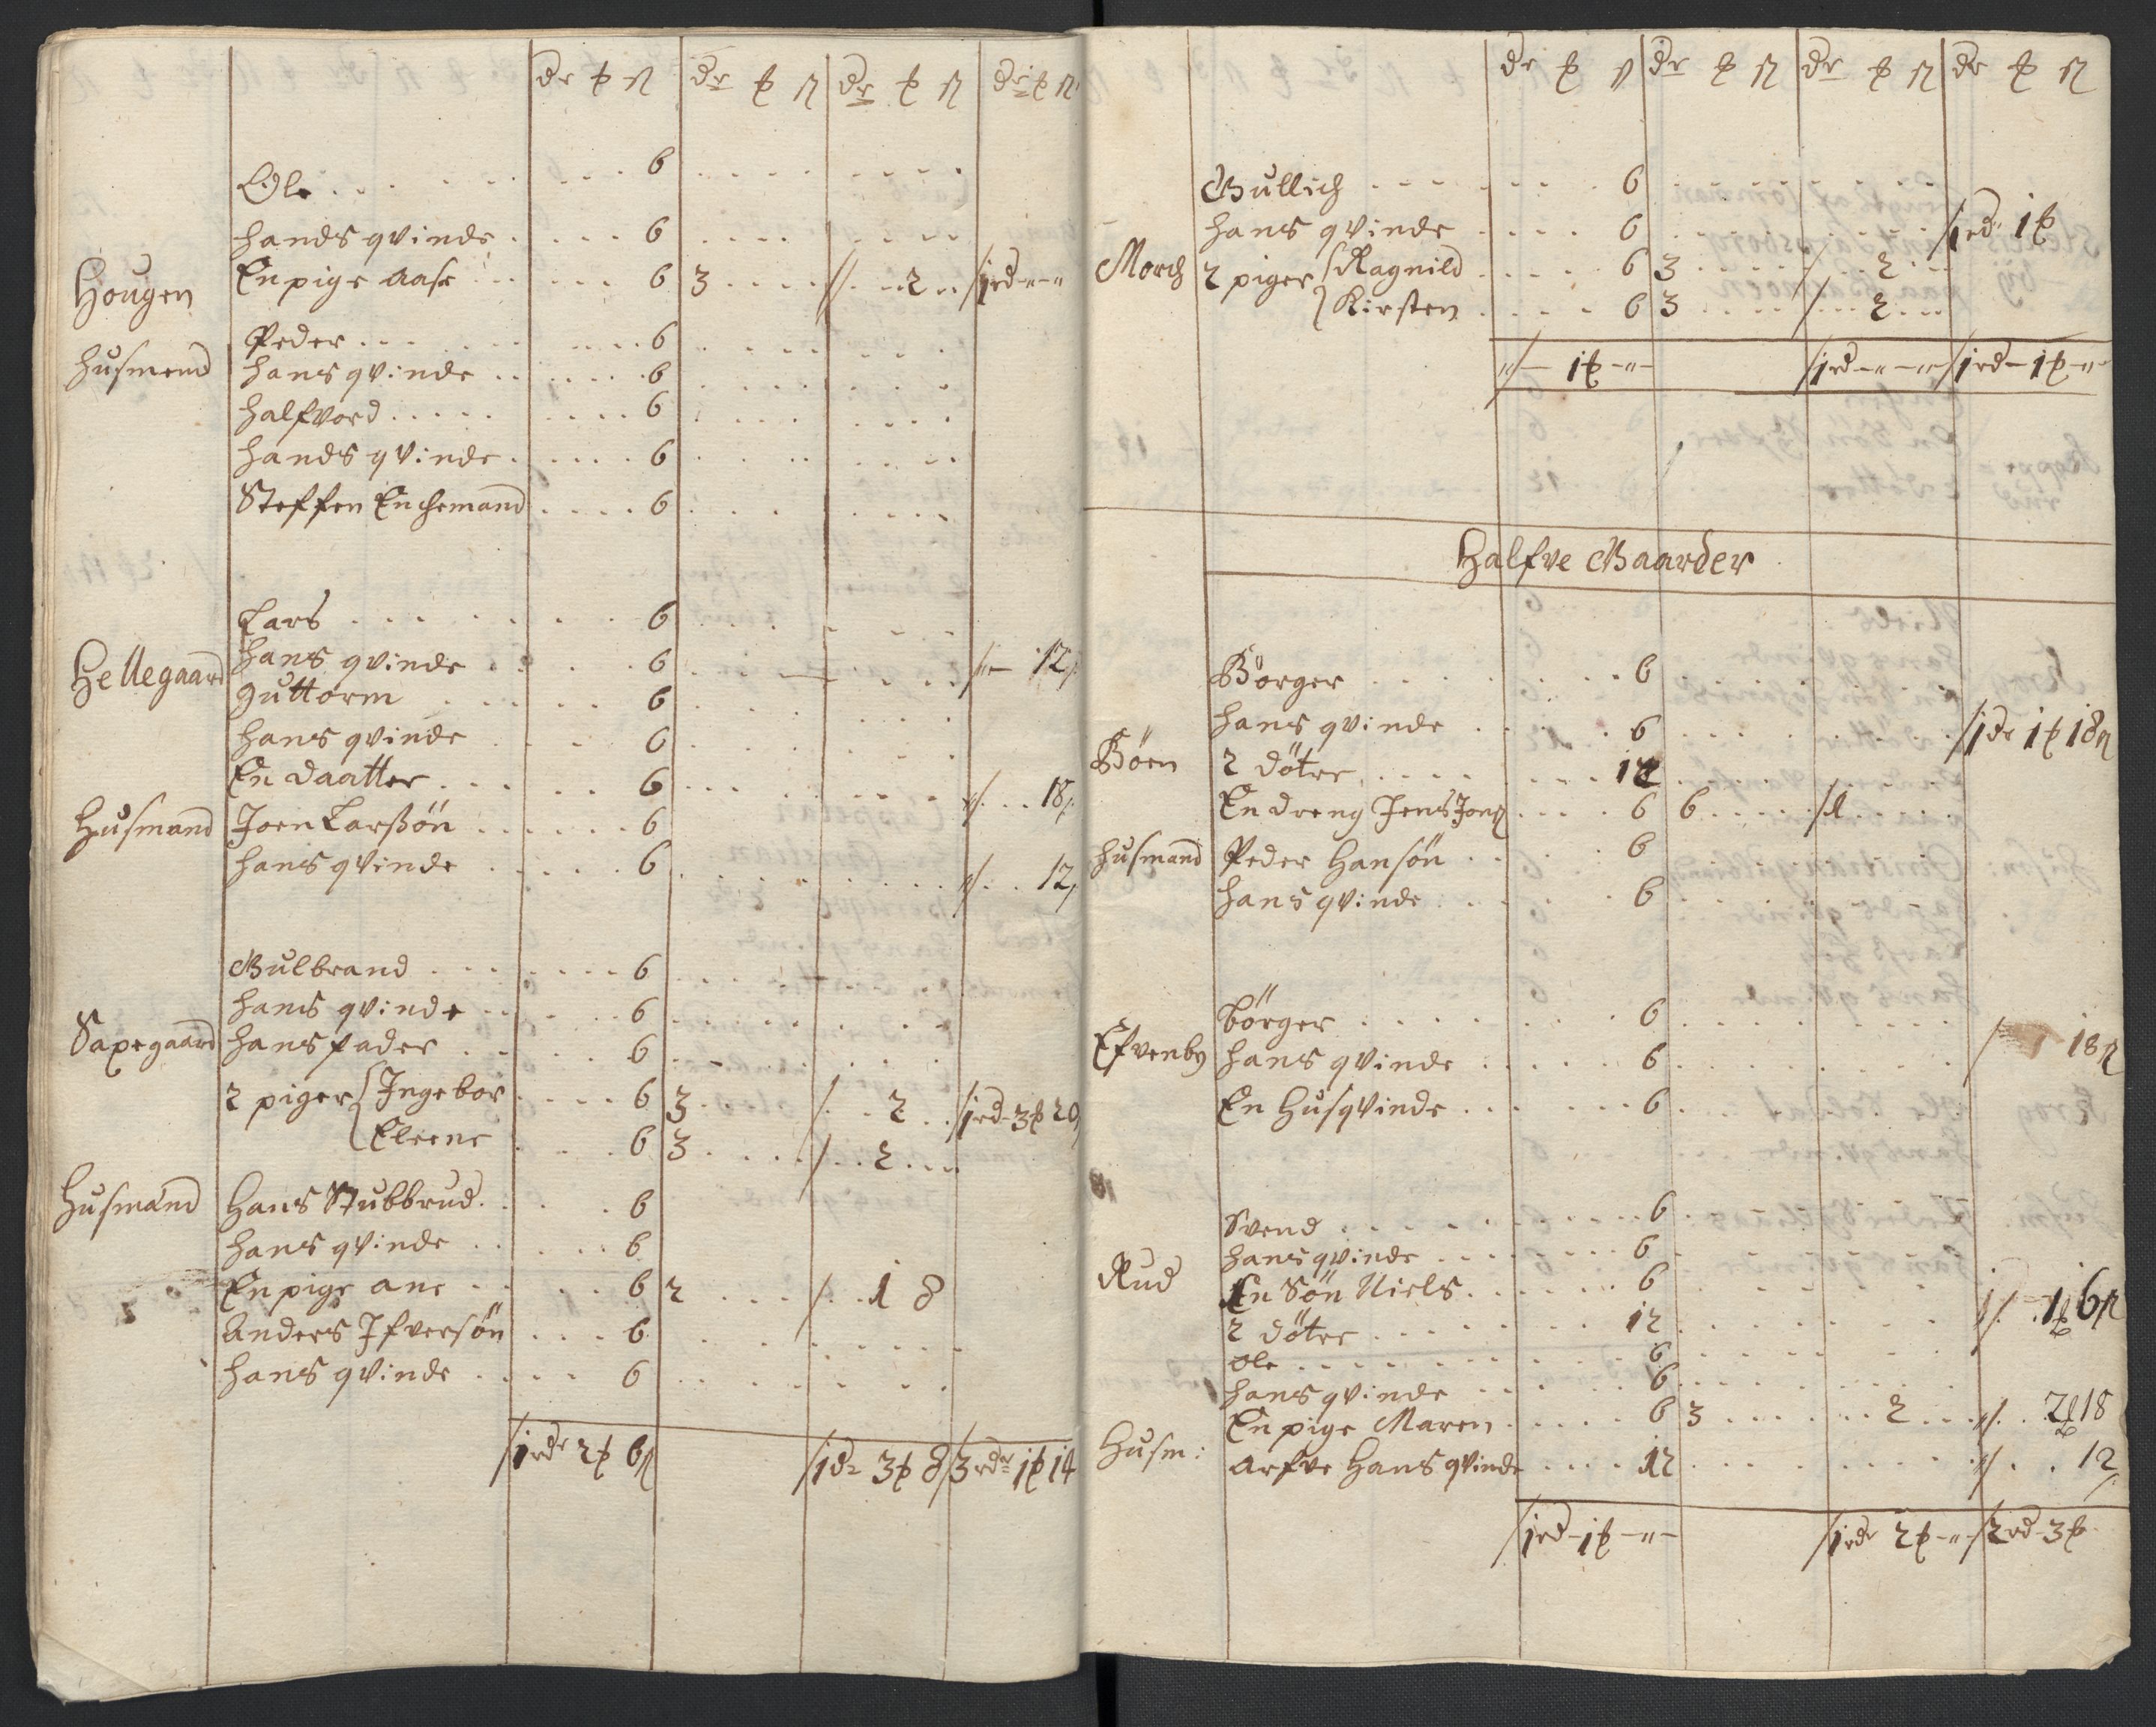 dr ꝑ ß dr ꝑ ß dr ꝑ ß dr ꝑ ß
Ole 6
hands qvinde 6
Hougen En pige Aase 6 3 2 1 rd
Peder 6
husmend hans qvinde 6
halfvord 6
hands qvinde 6
Steffen Enchemand 6
Lars 6
Hellegaard hans qvinde 6 12
guttorm 6
hans qvinde 6
En daatter 6 18
Husmand Joen Larßön 6
hans qvinde 6 12
Gulbrand 6
hans qvinde 6
Saxegaard hans fader 6
2 piger Ingebor 6 3 2 1 rd 3 ꝑ 20
Eleene 6 3 2
Husmand Hans Stubbrud 6
hans qvinde 6
En pige ane 6 2 1 8
Anders Ifversön 6
hans qvinde 6
1 rdr 2 ꝑ 6 ß 1 dr 3 ꝑ 8 3 rdr 1 ꝑ 14
dr ꝑ ß dr ꝑ ß dr ꝑ ß dr ꝑ ß
Gullich 6
hans qvinde 6 1 rd 1 ꝑ
Morch 2 piger Ragnild 6 3 2
Kirsten 6 3 2
1 ꝑ 1 rd 1 rd 1 ꝑ
Halfve Gaarder
Börger 6
hans qvinde 6 1 dr 1 ꝑ 18 ß
Böen 2 dötre 12
En dreng Jens 6 6 1
husmand Peder Hansön 6
hans qvinde 6
börger 6
Efvenby hans qvinde 6 18 ß
En Husqvinde 6
Svend 6
hans qvinde 6
Rud En Sön Niels 6 1 ꝑ 6 ß
2 dötre 12
ole 6
hans qvinde 6
En pige Maren 6 3 2 2 ꝑ 18
Husm: Arfve Hans qvinde 12 12
1 rd 1 ꝑ 1 rdr 2 ꝑ 2 rd 3 ꝑ